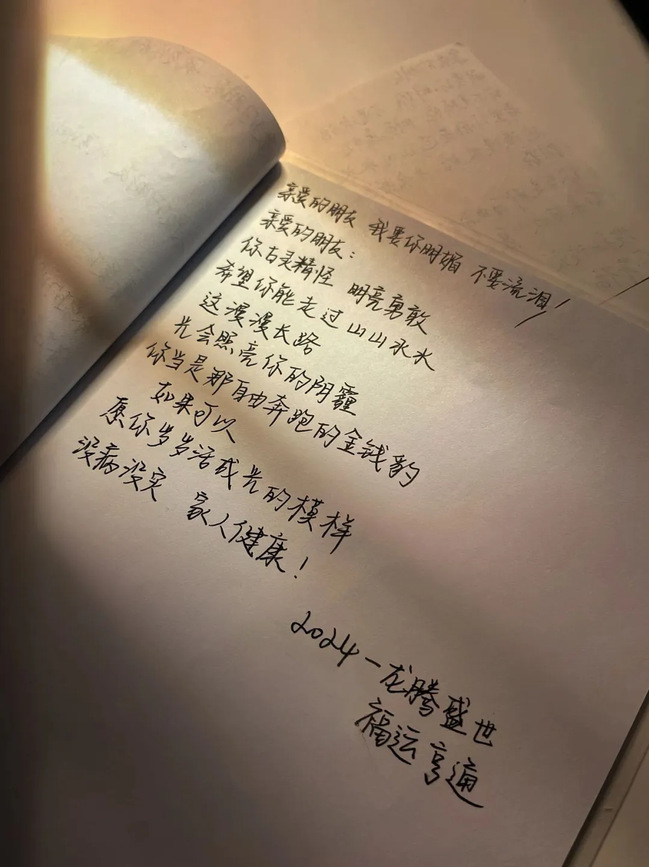 亲爱的朋友 我要你明媚 不要流泪!
亲爱的朋友:
你古灵精怪 明亮勇敢
希望你能走过山山水水
这漫漫长路
光会照亮你的阴霾
你当是那自由奔跑的金钱豹
如果可以
愿你岁岁活成光的模样
没病没灾 家人健康!
2024-龙腾盛世
福运亨通